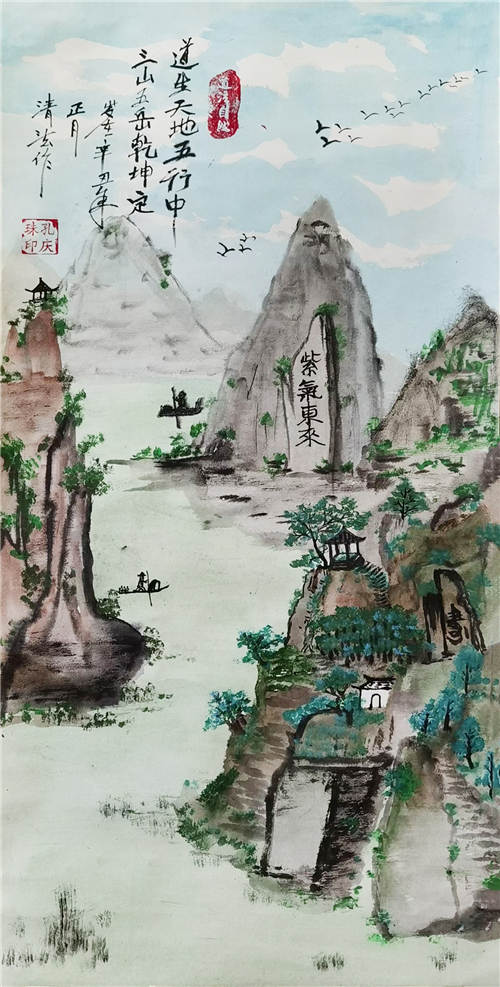 道生天地五行中
三山五岳乾坤定
辛丑年
正月
清法作
孔庆
珠印
紫氣東來